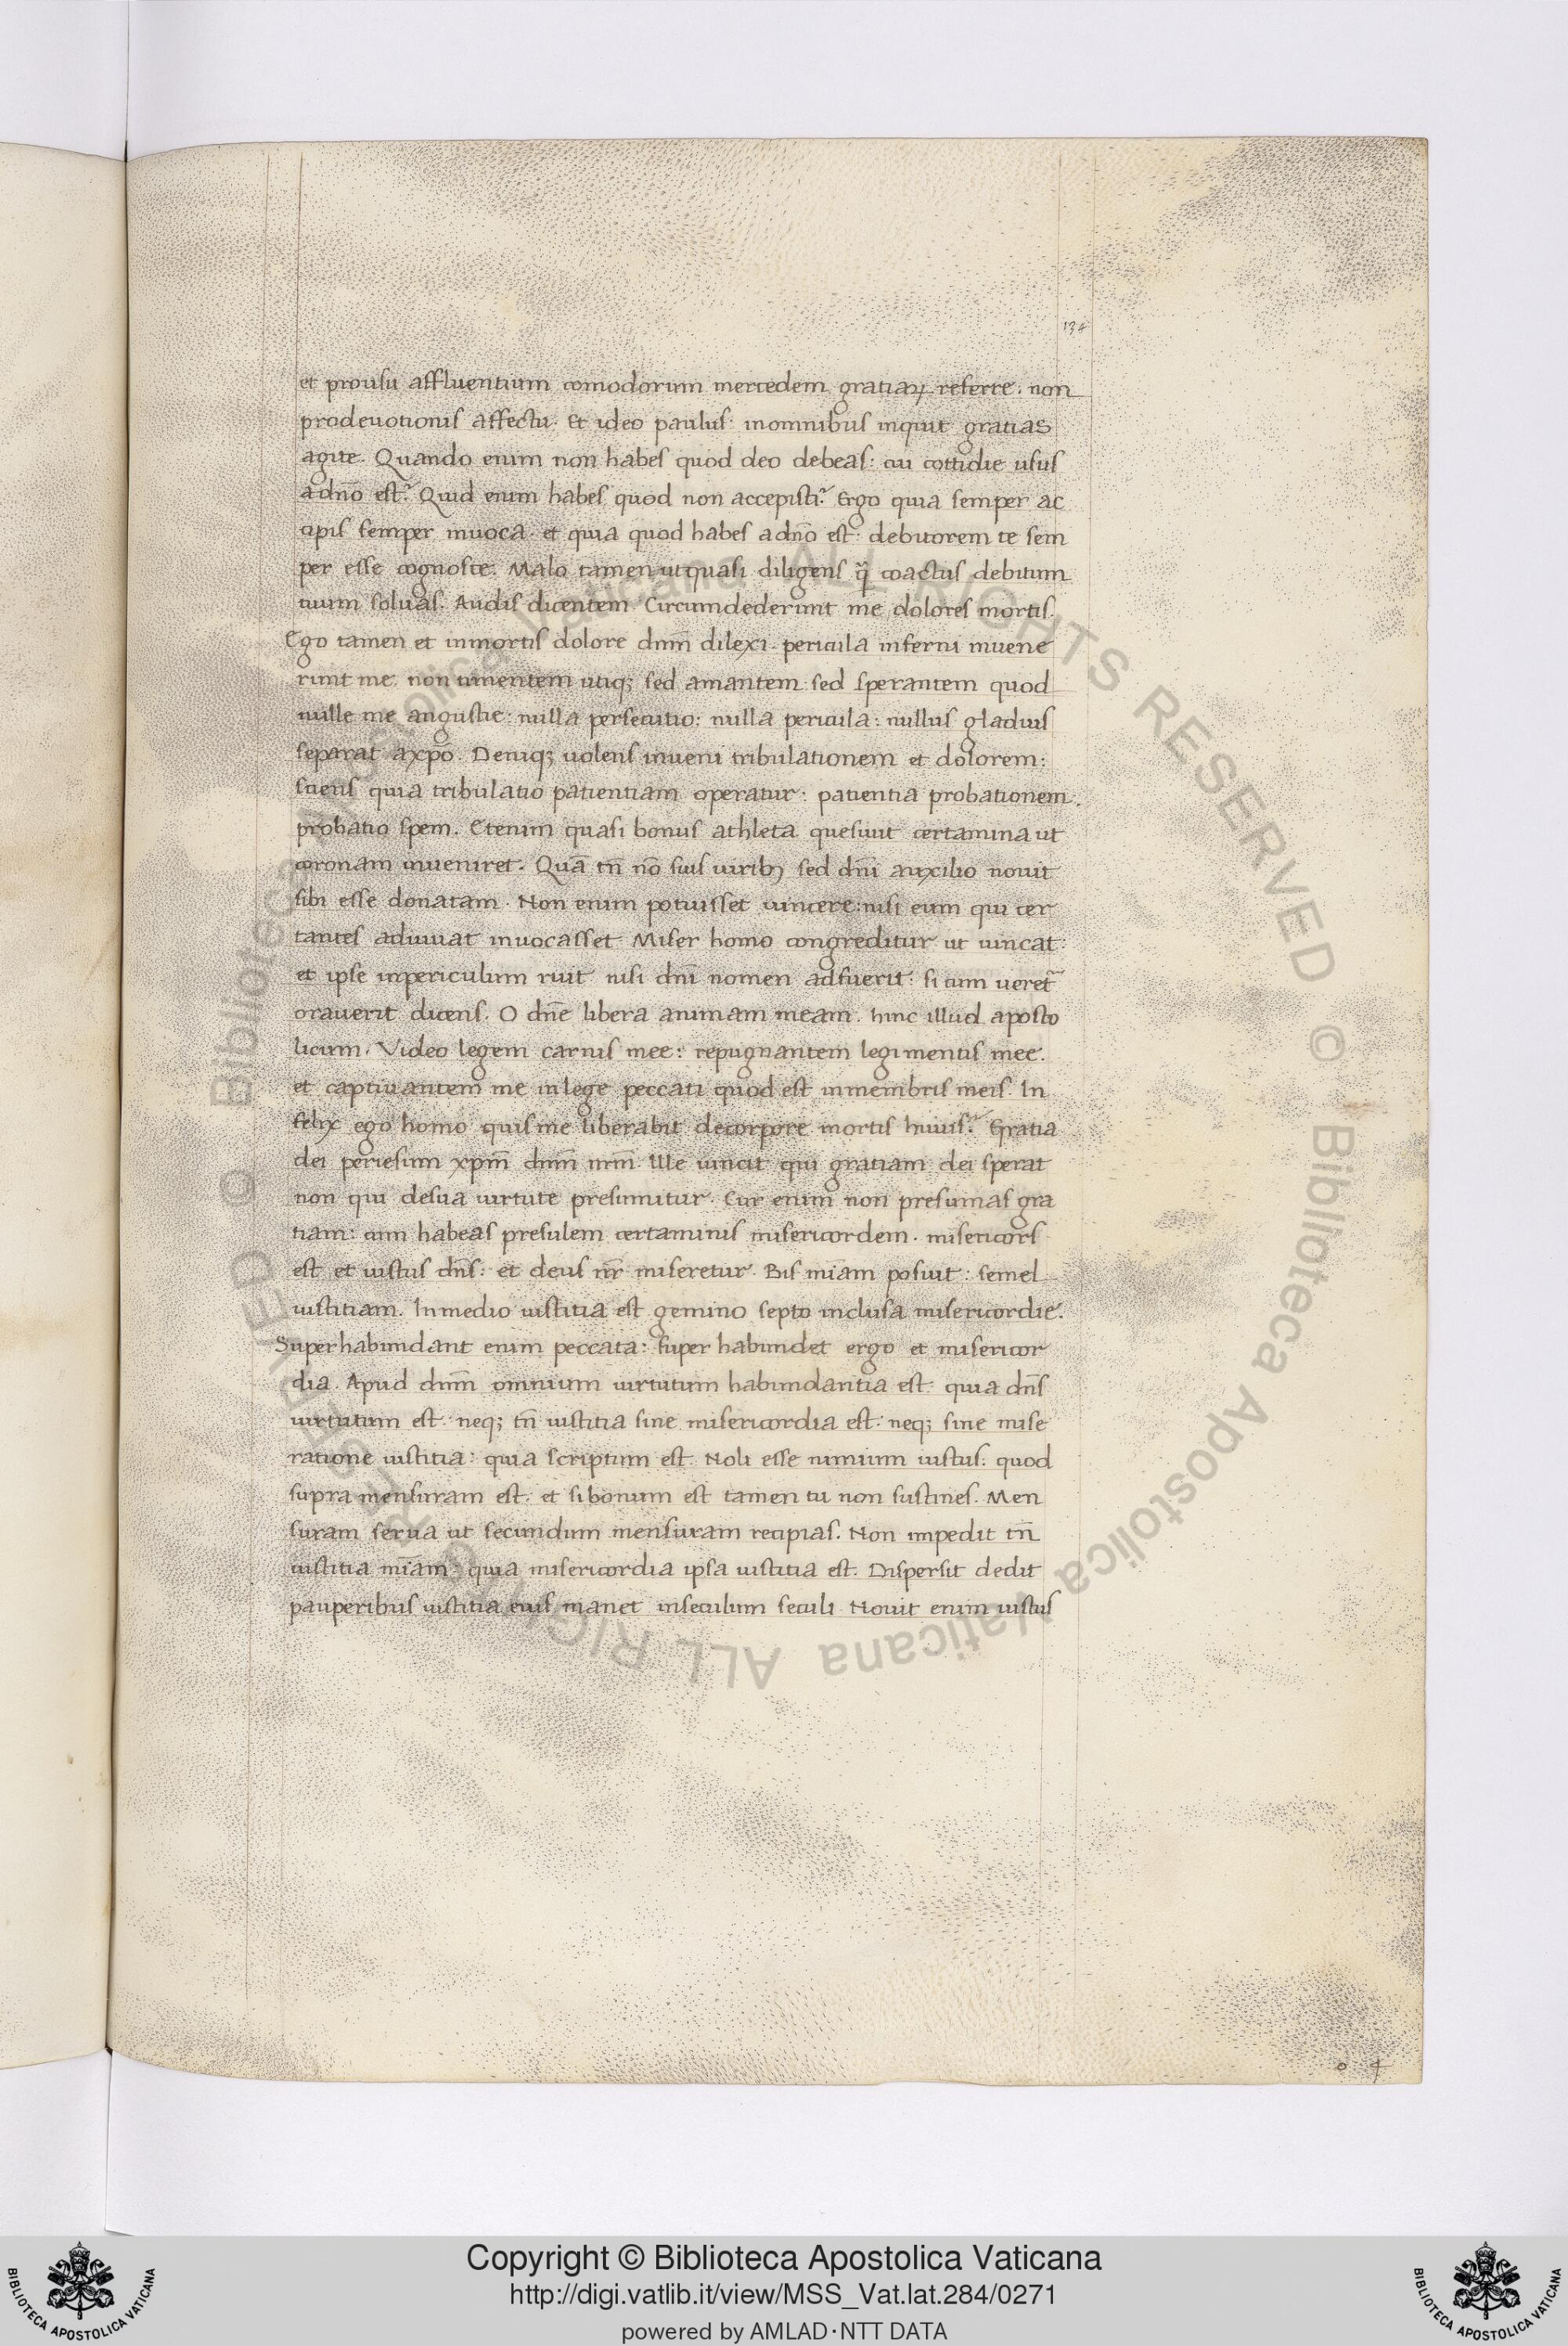 134
et prousu affluentium comodorum mercedem gratiaꝝ referre. non
prodeuotionis affectu. Et ideo paulus: inomnibus inquit gratias
agite. Quando enim non habes quod deo debeas: cui cottidie usus
adn̄o est? Quid enim habes quod non accepisti? Ergo quia semper ac
cipis semper inuoca. et quia quod habes adn̄o est: debitorem te sem
per esse cognosce. Malo tamen utquasi diligens q̄ coactus debitum
tuum soluas. Audis dicentem Circumdederunt me dolores mortis.
Ego tamen et inmortis dolore dnm̄ dilexi. pericula inferni inuene
runt me. non timentem utiq; sed amantem sed sperantem quod
nulle me angustie: nulla persecutio: nulla pericula: nullus gladius
separat axp̄o. Deniq; uolens inueni tribulationem et dolorem:
sciens quia tribulatio patientiam operatur: patientia probationem.
probatio spem. Etenim quasi bonus athleta quesiuit certamina ut
coronam inueniret. Quā tn̄ nō suis uirib; sed dn̄i auxilio nouit
sibi esse donatam. Non enim potuisset uincere: nisi eum qui cer
tantes adiuuat inuocasset. Miser homo congreditur ut uincat:
et ipse inpericulum ruit nisi dn̄i nomen adfuerit: si cum ueret̄
orauerit dicens. O dn̄e libera animam meam. hinc illud aposto
licum. Video legem carnis mee: repugnantem legi mentis mee.
et captiuantem me inlege peccati quod est inmembris meis. In
felix ego homo quis me liberabit decorpore mortis huius? Gratia
dei periesum xpm̄ dnm̄ nrm̄. Ille uincit qui gratiam dei sperat
non qui desua uirtute presumitur. Cur enim non presumas gra
tiam: cum habeas presulem certaminis misericordem. misericors
est et iustus dn̄s: et deus nr̄ miseretur. Bis mīam posuit: semel
iustitiam. Inmedio iustitia est gemino septo inclusa misericordie.
Superhabundant enim peccata: super habundet ergo et misericor
dia. Apud dnm̄ omnium uirtutum habundantia est. quia dn̄s
uirtutum est. neq; tn̄ iustitia sine misericordia est. neq; sine mise
ratione iustitia: quia scriptum est. Noli esse nimium iustus: quod
supra mensuram est. et sibonum est tamen tu non sustines. Men
suram serua ut secundum mensuram recipias. Non impedit tn̄
iustitia mīam. quia misericordia ipsa iustitia est. Dispersit dedit
pauperibus iustitia eius manet inseculum seculi. Nouit enim iustus
Copyright © Biblioteca Apostolica Vaticana
http://digi.vatlib.it/view/MSS_Vat.lat.284/0271
powered by AMLAD·NTT DATA